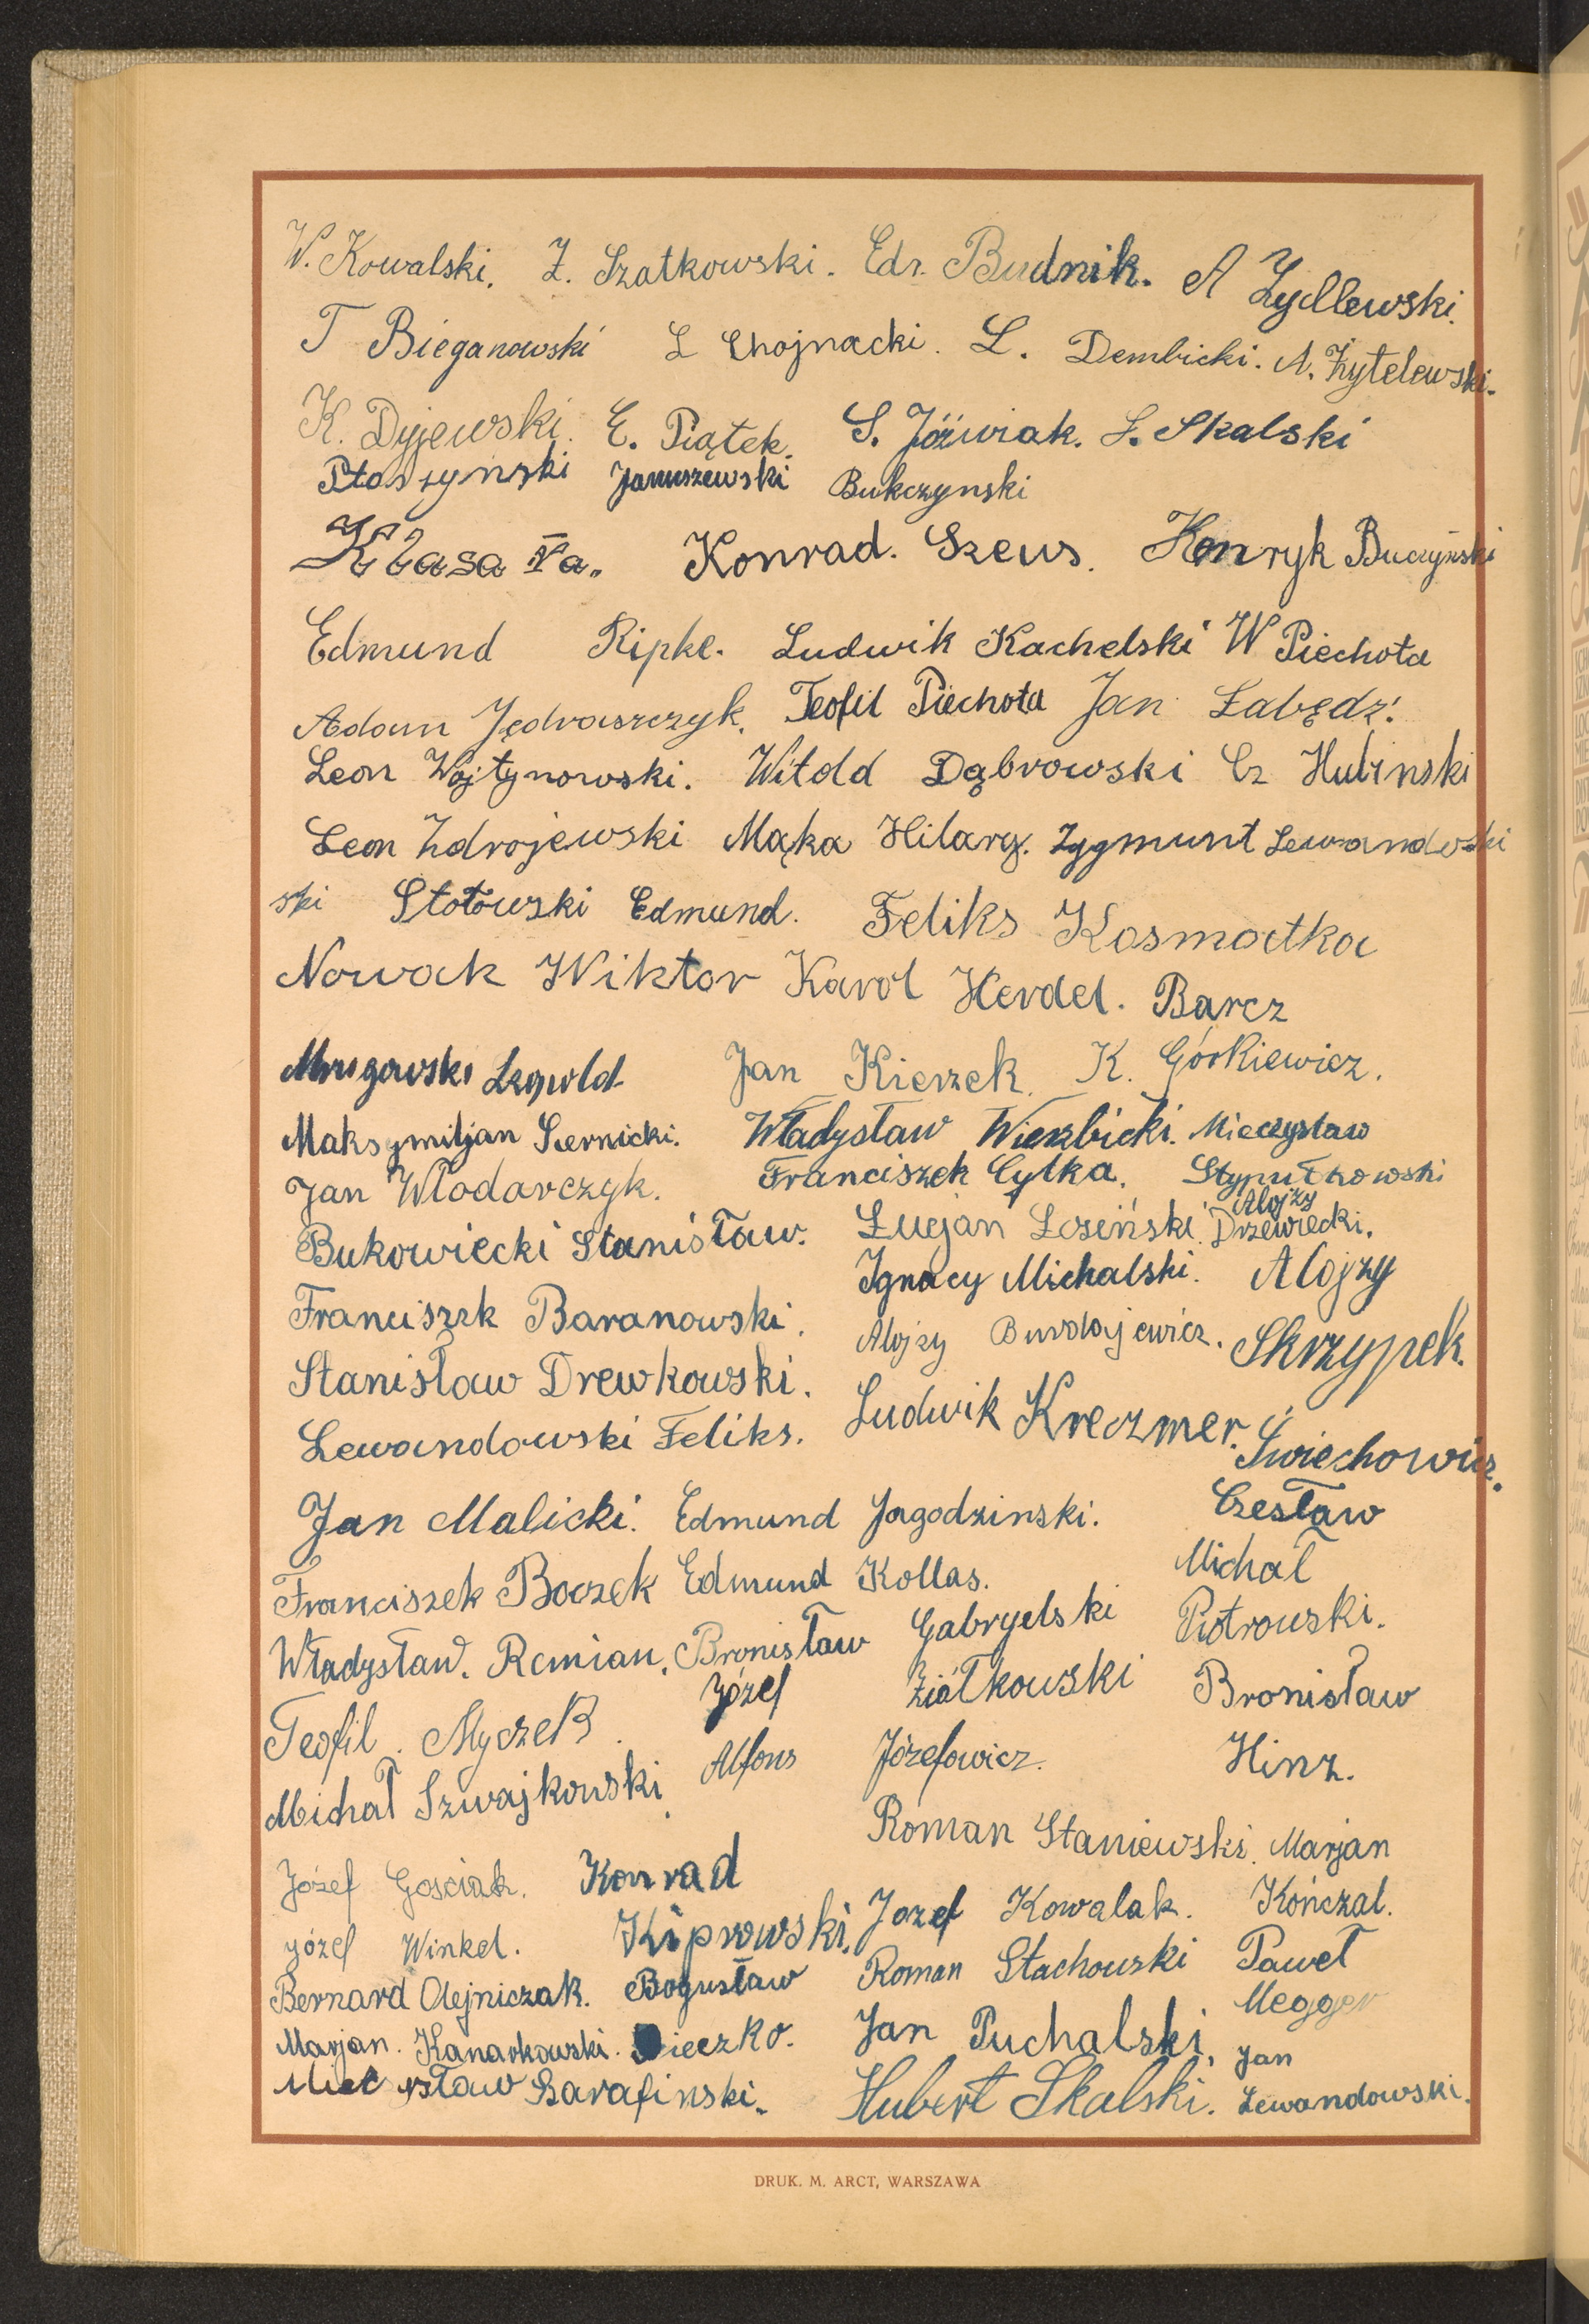 W. Kowalski. Z. Szatkowski. Edr. Budnik. A Zydlewski.
T Bieganowski L Chojnacki. L. Dembicki. A. Żytelewski.
K. Dyjewski. E. Piątek. S. Jóźwiak. L. Skalski
Ptaszyński Januszewski Bukczynski
Klasa Va. Konrad. Szews. Henryk Buczyński
Edmund Ripke. Ludwik Kachelski W Piechota
Adam Jędraszczyk. Teofil Piechota Jan Łabędź.
Leon Wojtynowski. Witold Dąbrowski Cz Hubinski
Leon Zdrojewski Mąka Hilary. Zygmunt Lewandowski
ski Stotowski Edmund. Feliks Kosmatka
Nowak Wiktor Karol Herdel. Barcz
Mrugowski Leopold Jan Kierzek. K. Górkiewicz.
Maksymiljan Siernicki. Władysław Wierzbicki. Mieczysław
Jan Włodarczyk. Franciszek Cylka. Stypułkowski
Bukowiecki Stanisław. Lucjan Łosiński. Alojzy Drzewiecki.
Ignacy Michalski. Alojzy
Franciszek Baranowski. Alojzy Burdajewicz. Skrzypek.
Stanisław Drewkowski.
Lewandowski Feliks. Ludwik Kreczmer. Świechowicz.
Jan Malicki. Edmund Jagodzinski. Czesław
Franciszek Boczek Edmund Kollas. Michał
Władysław. Remian. Bronisław Gabryelski Piotrowski.
Teofil. Myczek. Józef Ziółkowski Bronisław
Michał Szwajkowski. Alfons Józefowicz. Hinz.
Roman Staniewski. Marjan
Józef Gościak. Konrad
Józef Winkel. Kiprowski. Jozef Kowalak. Kończal.
Bernard Olejniczak. Bogusław Roman Stachowski Paweł
Megger
Marjan. Kanarkowski. Dieczko. Jan Puchalski. Jan
Mieczysław Sarafinski. Hubert Skalski. Lewandowski.
DRUK. M. ARCT, WARSZAWA